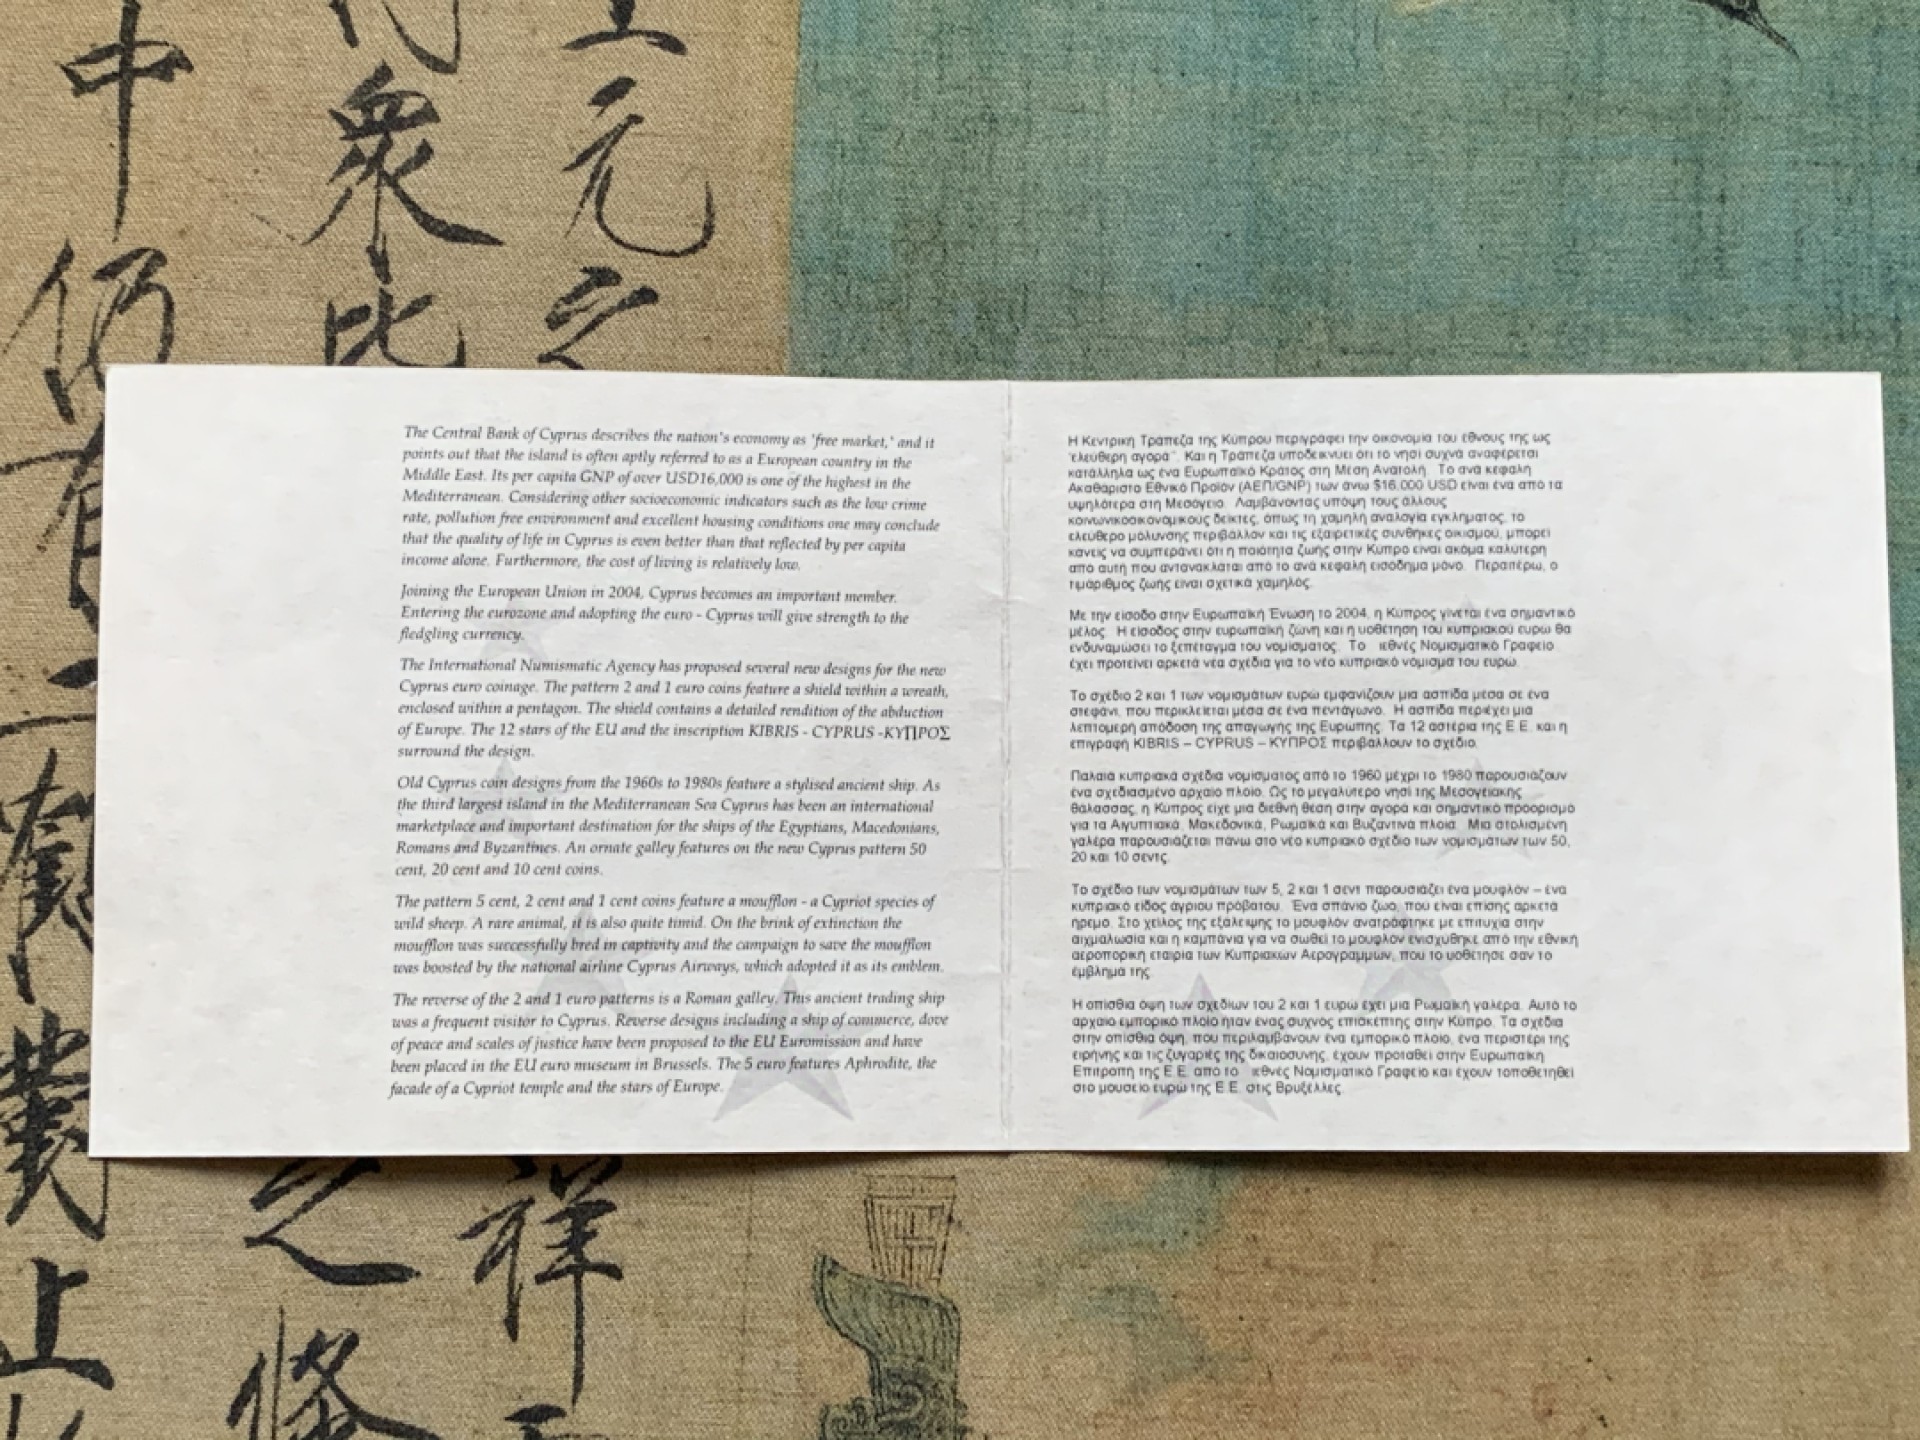 中
仍
有
上
衆
比
之
上
元
之
祥
The Central Bank of Cyprus describes the nation's economy as 'free market,' and it
points out that the island is often aptly referred to as a European country in the
Middle East. Its per capita GNP of over USD16,000 is one of the highest in the
Mediterranean. Considering other socioeconomic indicators such as the low crime
rate, pollution free environment and excellent housing conditions one may conclude
that the quality of life in Cyprus is even better than that reflected by per capita
income alone. Furthermore, the cost of living is relatively low.
Joining the European Union in 2004, Cyprus becomes an important member.
Entering the eurozone and adopting the euro - Cyprus will give strength to the
fledgling currency.
The International Numismatic Agency has proposed several new designs for the new
Cyprus euro coinage. The pattern 2 and 1 euro coins feature a shield within a wreath,
enclosed within a pentagon. The shield contains a detailed rendition of the abduction
of Europe. The 12 stars of the EU and the inscription KIBRIS - CYPRUS -ΚΥΠΡΟΣ
surround the design.
Old Cyprus coin designs from the 1960s to 1980s feature a stylised ancient ship. As
the third largest island in the Mediterranean Sea Cyprus has been an international
marketplace and important destination for the ships of the Egyptians, Macedonians,
Romans and Byzantines. An ornate galley features on the new Cyprus pattern 50
cent, 20 cent and 10 cent coins.
The pattern 5 cent, 2 cent and 1 cent coins feature a moufflon - a Cypriot species of
wild sheep. A rare animal, it is also quite timid. On the brink of extinction the
moufflon was successfully bred in captivity and the campaign to save the moufflon
was boosted by the national airline Cyprus Airways, which adopted it as its emblem.
The reverse of the 2 and 1 euro patterns is a Roman galley. This ancient trading ship
was a frequent visitor to Cyprus. Reverse designs including a ship of commerce, dove
of peace and scales of justice have been proposed to the EU Euromission and have
been placed in the EU euro museum in Brussels. The 5 euro features Aphrodite, the
facade of a Cypriot temple and the stars of Europe.
Η Κεντρική Τράπεζα της Κύπρου περιγράφει την οικονομία του έθνους της ως
"ελεύθερη αγορά". Και η Τράπεζα υποδεικνύει ότι το νησί συχνά αναφέρεται
κατάλληλα ως ένα Ευρωπαϊκό Κράτος στη Μέση Ανατολή. Το ανά κεφαλή
Ακαθάριστο Εθνικό Προϊόν (ΑΕΠ/GNP) των άνω $16,000 USD είναι ένα από τα
υψηλότερα στη Μεσόγειο. Λαμβάνοντας υπόψη τους άλλους
κοινωνικοοικονομικούς δείκτες, όπως τη χαμηλή αναλογία εγκλήματος, το
ελεύθερο μόλυνσης περιβάλλον και τις εξαιρετικές συνθήκες οικισμού, μπορεί
κανείς να συμπεράνει ότι η ποιότητα ζωής στην Κύπρο είναι ακόμα καλύτερη
από αυτή που αντανακλάται από το ανά κεφαλή εισόδημα μόνο. Περαιτέρω, ο
τιμάριθμος ζωής είναι σχετικά χαμηλός.
Με την είσοδο στην Ευρωπαϊκή Ένωση το 2004, η Κύπρος γίνεται ένα σημαντικό
μέλος. Η είσοδος στην ευρωπαϊκή ζώνη και η υοθέτηση του κυπριακού ευρώ θα
ενδυναμώσει το ξεπέταγμα του νομίσματος. Το ιεθνές Νομισματικό Γραφείο
έχει προτείνει αρκετά νέα σχέδια για το νέο κυπριακό νόμισμα του ευρώ.
Το σχέδιο 2 και 1 των νομισμάτων ευρώ εμφανίζουν μια ασπίδα μέσα σε ένα
στεφάνι, που περικλείεται μέσα σε ένα πεντάγωνο. Η ασπίδα περιέχει μια
λεπτομερή απόδοση της απαγωγής της Ευρώπης. Τα 12 αστέρια της Ε.Ε. και η
επιγραφή KIBRIS – CYPRUS – ΚΥΠΡΟΣ περιβάλλουν το σχέδιο.
Παλαιά κυπριακά σχέδια νομίσματος από το 1960 μέχρι το 1980 παρουσιάζουν
ένα σχεδιασμένο αρχαίο πλοίο. Ως το μεγαλύτερο νησί της Μεσογειακής
θάλασσας, η Κύπρος είχε μια διεθνή θέση στην αγορά και σημαντικό προορισμό
για τα Αιγυπτιακά, Μακεδονικά, Ρωμαϊκά και Βυζαντινά πλοία. Μια στολισμένη
γαλέρα παρουσιάζεται πάνω στο νέο κυπριακό σχέδιο των νομισμάτων των 50,
20 και 10 σεντς.
Το σχέδιο των νομισμάτων των 5, 2 και 1 σεντ παρουσιάζει ένα μουφλόν – ένα
κυπριακό είδος άγριου πρόβατου. Ένα σπάνιο ζώο, που είναι επίσης αρκετά
ήρεμο. Στο χείλος της εξάλειψης το μουφλόν ανατράφηκε με επιτυχία στην
αιχμαλωσία και η καμπάνια για να σωθεί το μουφλόν ενισχύθηκε από την εθνική
αεροπορική εταιρία των Κυπριακών Αερογραμμών, που το υοθέτησε σαν το
έμβλημα της.
Η οπίσθια όψη των σχεδίων του 2 και 1 ευρώ έχει μια Ρωμαϊκή γαλέρα. Αυτό το
αρχαίο εμπορικό πλοίο ήταν ένας συχνός επισκέπτης στην Κύπρο. Τα σχέδια
στην οπίσθια όψη, που περιλαμβάνουν ένα εμπορικό πλοίο, ένα περιστέρι της
ειρήνης και τις ζυγαριές της δικαιοσύνης, έχουν προταθεί στην Ευρωπαϊκή
Επιτροπή της Ε.Ε. από το ιεθνές Νομισματικό Γραφείο και έχουν τοποθετηθεί
στο μουσείο ευρώ της Ε.Ε. στις Βρυξέλλες.